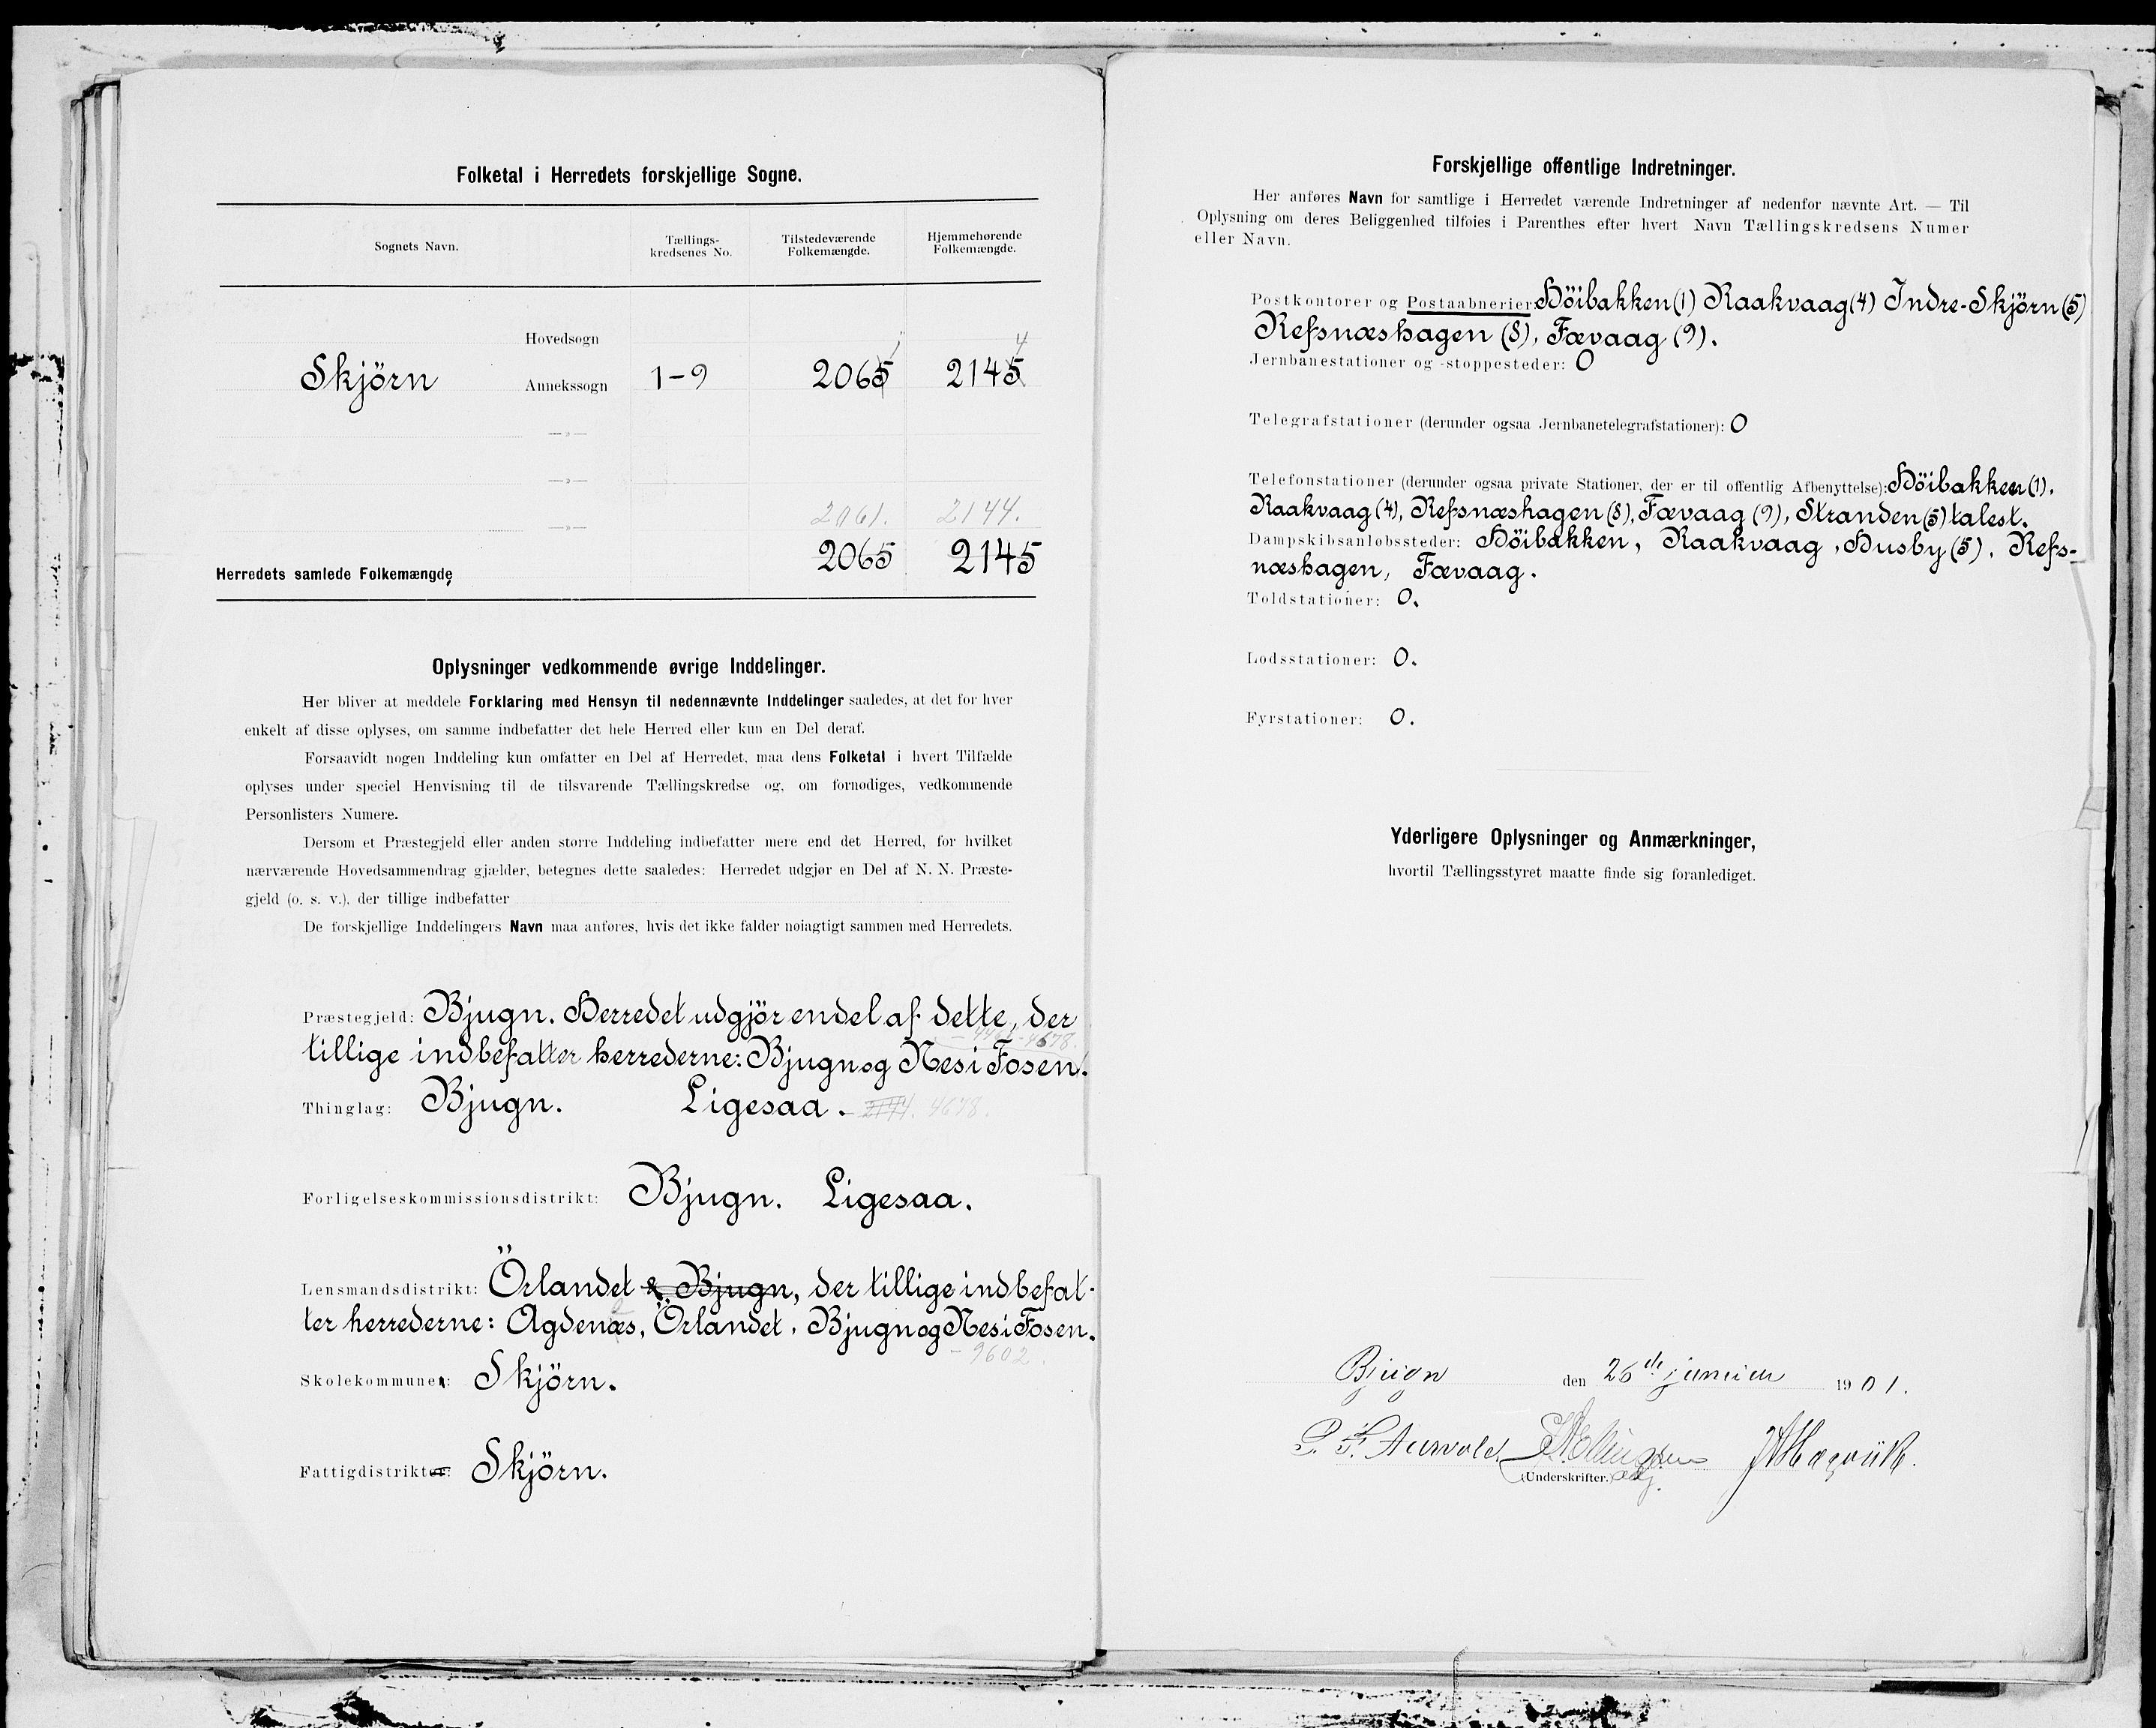 Folketal i Herredets forskjellige Sogne.
Sognets Navn.
Tællings-
kredsenes No.
Tilstedeværende
Folkemængde.
Hjemmehørende
Folkemængde.
Hovedsogn
1 4
Skjörn Annekssogn 1-9 2065 2145
—„—
—„—
2061. 2144.
—„—
2065 2145
Herredets samlede Folkemængde
Oplysninger vedkommende øvrige Inddelinger.
Her bliver at meddele Forklaring med Hensyn til nedennævnte Inddelinger saaledes, at det for hver
enkelt af disse oplyses, om samme indbefatter det hele Herred eller kun en Del deraf.
Forsaavidt nogen Inddeling kun omfatter en Del af Herredet, maa dens Folketal i hvert Tilfælde
oplyses under speciel Henvisning til de tilsvarende Tællingskredse og, om fornødiges, vedkommende
Personlisters Numere.
Dersom et Præstegjeld eller anden større Inddeling indbefatter mere end det Herred, for hvilket
nærværende Hovedsammendrag gjælder, betegnes dette saaledes: Herredet udgjør en Del af N. N. Præste-
gjeld (o. s. v.), der tillige indbefatter
De forskjellige Inddelingers Navn maa anføres, hvis det ikke falder nøiagtigt sammen med Herredets.
Præstegjeld: Bjugn. Herredet udgjör endel af dette, der
4678.
tillige indbefatter herrederne: Bjugn og Nes i Fosen.
Thinglag: Bjugn. Ligesaa. 4678.
Forligelseskommissionsdistrikt: Bjugn. Ligesaa.
Lensmandsdistrikt: Örlandet & Bjugn, der tillige indbefat-
ter herrederne: Agdenæs, Örlandet, Bjugn og Nes i Fosen.
- 9602.
Skolekommuner: Skjörn.
Fattigdistrikter: Skjörn.
Forskjellige offentlige Indretninger.
Her anføres Navn for samtlige i Herredet værende Indretninger af nedenfor nævnte Art. — Til
Oplysning om deres Beliggenhed tilføies i Parenthes efter hvert Navn Tællingskredsens Numer
eller Navn.
Postkontorer og Postaabnerier: Höibakken (1) Raakvaag (4) Indre-Skjörn (5)
Refsnæshagen (8), Fævaag (9).
Jernbanestationer og -stoppesteder: 0
Telegrafstationer (derunder ogsaa Jernbanetelegrafstationer): 0
Telefonstationer (derunder ogsaa private Stationer, der er til offentlig Afbenyttelse): Höibakken (1),
Raakvaag (4), Refsnæshagen (8), Fævaag (9), Stranden (5) talest.
Dampskibsanløbssteder: Höibakken, Raakvaag, Husby (5), Refs-
næshagen, Fævaag.
Toldstationer: 0.
Lodsstationer: 0.
Fyrstationer: 0.
Yderligere Oplysninger og Anmærkninger,
hvortil Tællingsstyret maatte finde sig foranlediget.
Bjugn den 26de januar 1901.
P. F. Aurvold.
(Underskrifter.)